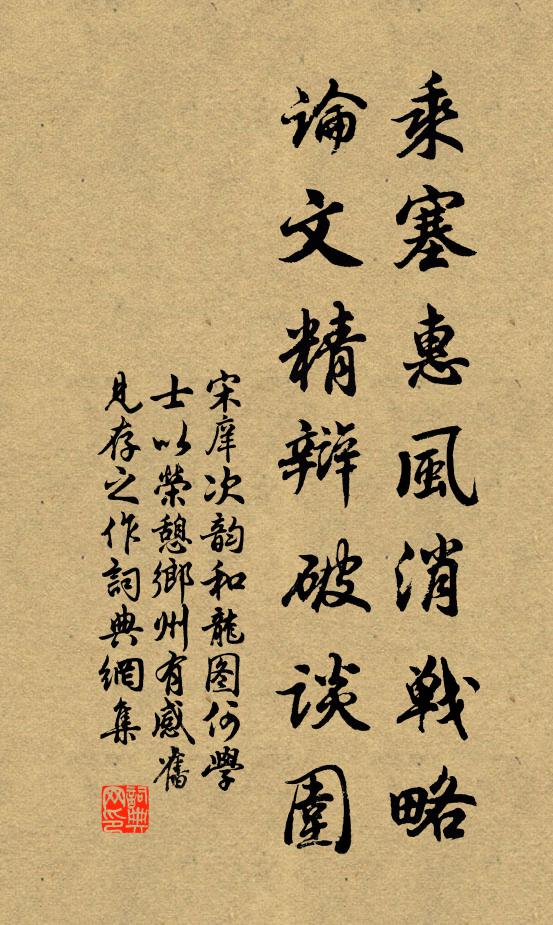 乘塞惠風消戦略
論文精辯破談圍
宋庠次韵和龍图何學
士以榮憩鄉州有感舊
見存之作詞典網集
詞典网印